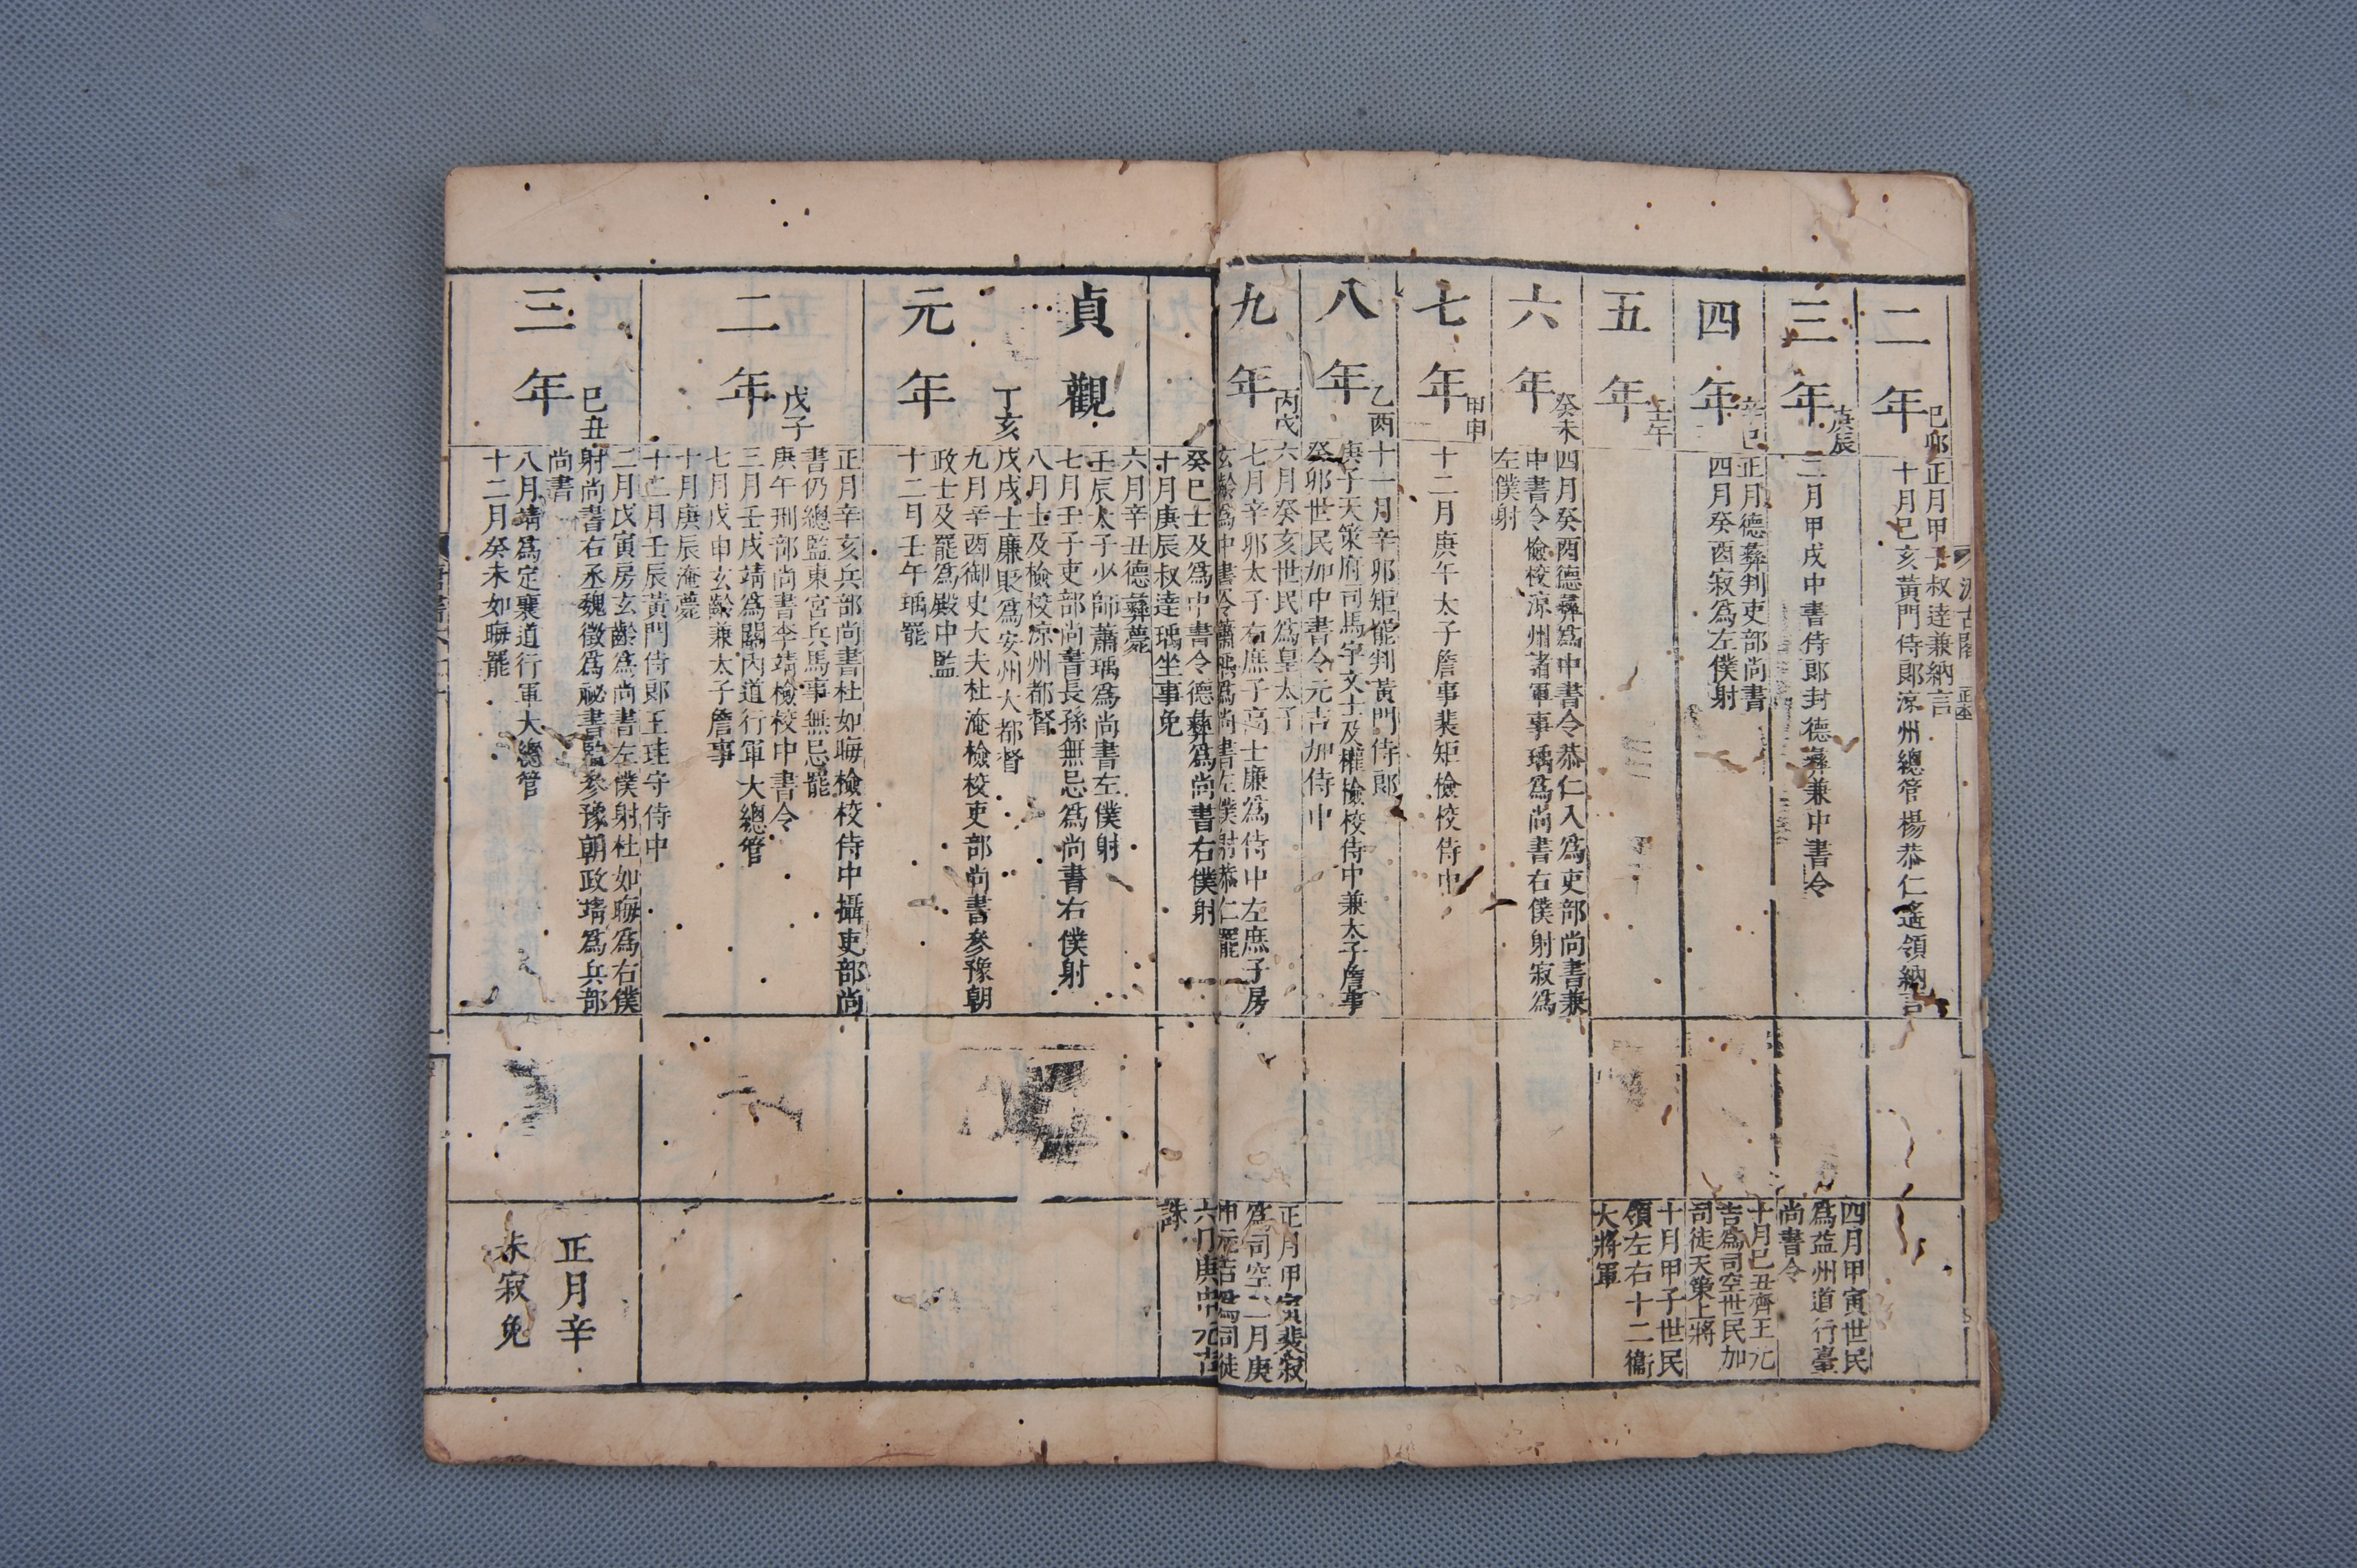 汲古閣
二年
己卯
正月甲子叔達兼納言
十月己亥黃門侍郎涼州總管楊恭仁遙領納言
三年
庚辰
三月甲戌中書侍郎封德彝兼中書令
四月甲寅世民
爲益州道行臺
尚書令
四年
辛巳
正月德彝判吏部尚書
四月癸酉寂爲左僕射
十月己丑齊王元
吉爲司空世民加
司徒天策上將
五年
壬午
十月甲子世民
領左右十二衞
大將軍
六年
癸未
四月癸酉德彝爲中書令恭仁入爲吏部尚書兼
中書令檢校涼州諸軍事瑀爲尚書右僕射寂爲
左僕射
七年
甲申
十二月庚午太子詹事裴矩檢校侍中
八年
乙酉
十一月辛卯矩罷判黃門侍郎
庚子天策府司馬宇文士及權檢校侍中兼太子詹事
癸卯世民加中書令元吉加侍中
九年
丙戌
六月癸亥世民爲皇太子
七月辛卯太子右庶子高士廉爲侍中左庶子房
玄齡爲中書令蕭瑀爲尚書左僕射恭仁罷
癸巳士及爲中書令德彝爲尚書右僕射
十月庚辰叔達瑀坐事免
正月甲寅裴寂
爲司空二月庚
申元吉爲司徒
六月庚申元吉
誅
貞觀
元年
丁亥
六月辛丑德彝薨
壬辰太子少師蕭瑀爲尚書左僕射
七月壬子吏部尚書長孫無忌爲尚書右僕射
八月士及檢校涼州都督
戊戌士廉貶爲安州大都督
九月辛酉御史大夫杜淹檢校吏部尚書參豫朝
政士及罷爲殿中監
十二月壬午瑀罷
二年
戊子
正月辛亥兵部尚書杜如晦檢校侍中攝吏部尚
書仍總監東宮兵馬事無忌罷
庚午刑部尚書李靖檢校中書令
三月壬戌靖爲關內道行軍大總管
七月戊申玄齡兼太子詹事
十月庚辰淹薨
十二月壬辰黃門侍郎王珪守侍中
三年
己丑
二月戊寅房玄齡爲尚書左僕射杜如晦爲右僕
射尚書右丞魏徵爲祕書監參豫朝政靖爲兵部
尚書
八月靖爲定襄道行軍大總管
十二月癸未如晦罷
正月辛
未寂免